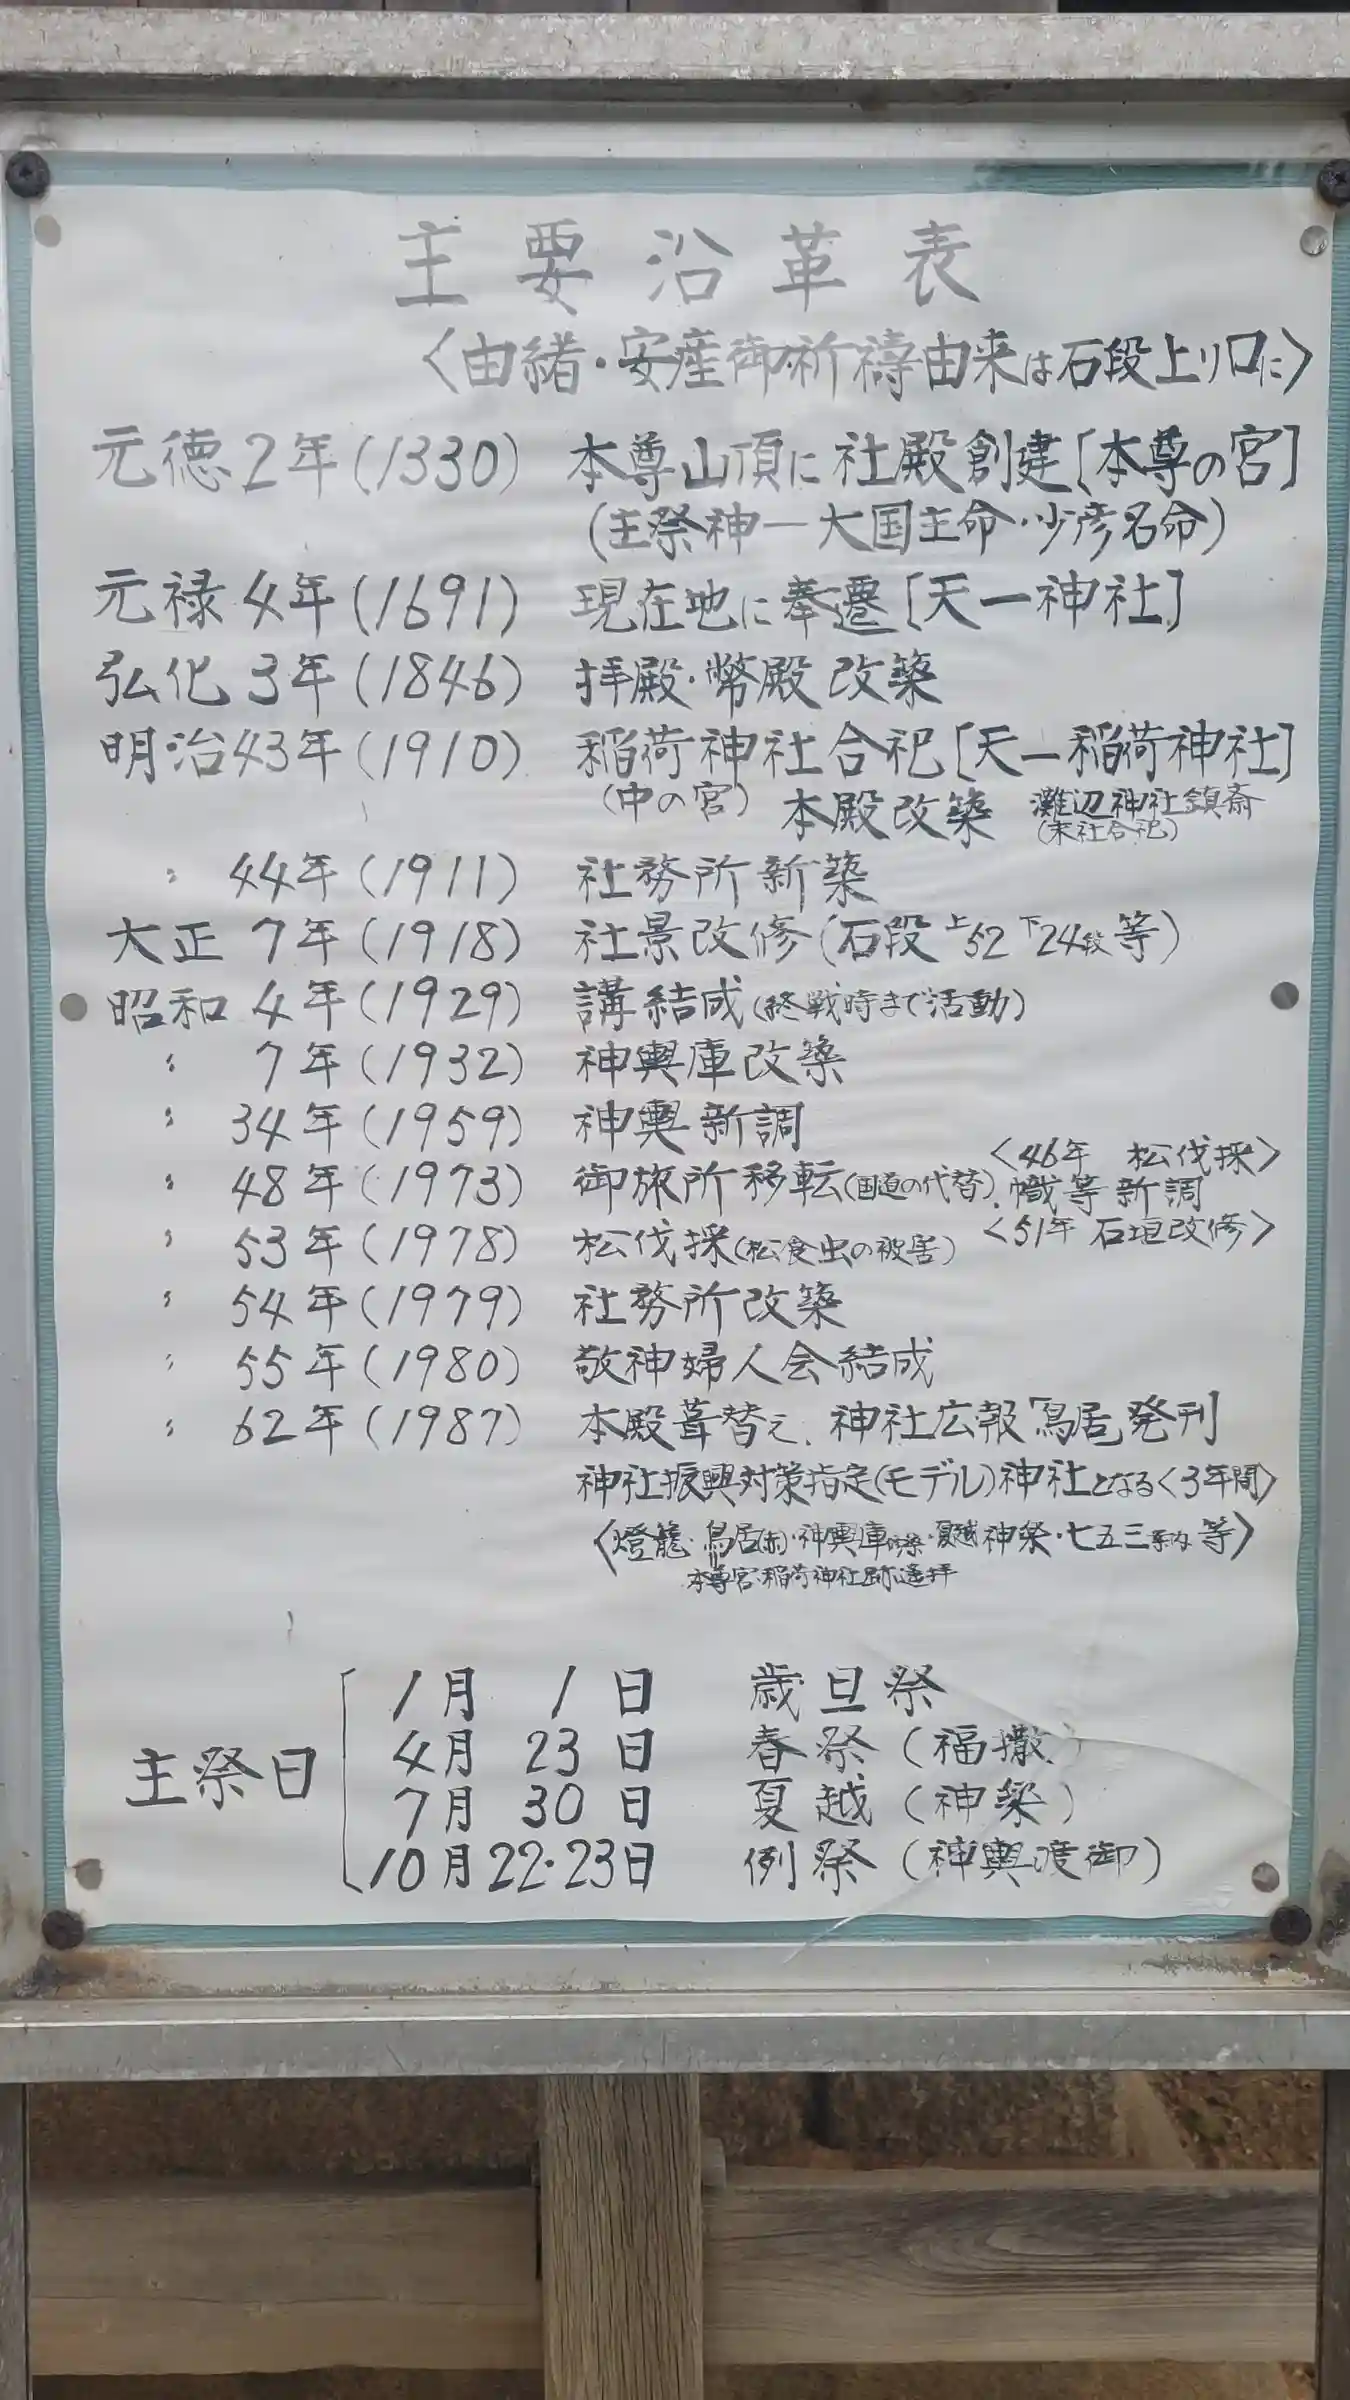 主要沿革表
〈由緒・安産御祈禱由来は石段上り口に〉
元徳2年(1330) 本尊山頂に社殿創建[本尊の宮]
(主祭神―大国主命・少彦名命)
元禄4年(1691) 現在地に奉遷[天一神社]
弘化3年(1846) 拝殿・幣殿改築
明治43年(1910) 稲荷神社合祀[天一稲荷神社]
(中の宮) 本殿改築 灘辺神社鎮斎
(末社合祀)
〃 44年(1911) 社務所新築
大正7年(1918) 社景改修(石段上52下24段等)
昭和4年(1929) 講結成(終戦時まで活動)
〃 7年(1932) 神輿庫改築
〃 34年(1959) 神輿新調
〈46年 松伐採〉
〃 48年(1973) 御旅所移転(国道の代替)、幟等新調
〈51年 石垣改修〉
〃 53年(1978) 松伐採(松食虫の被害)
〃 54年(1979) 社務所改築
〃 55年(1980) 敬神婦人会結成
〃 62年(1987) 本殿葺替え、神社広報「鳥居」発刊
神社振興対策指定(モデル)神社となる〈3年間〉
〈燈籠・鳥居・神輿庫・夏越神楽・七五三案内等〉
本尊宮・稲荷神社跡遙拝
主祭日
1月1日 歳旦祭
4月23日 春祭(福撒)
7月30日 夏越(神楽)
10月22・23日 例祭(神輿渡御)